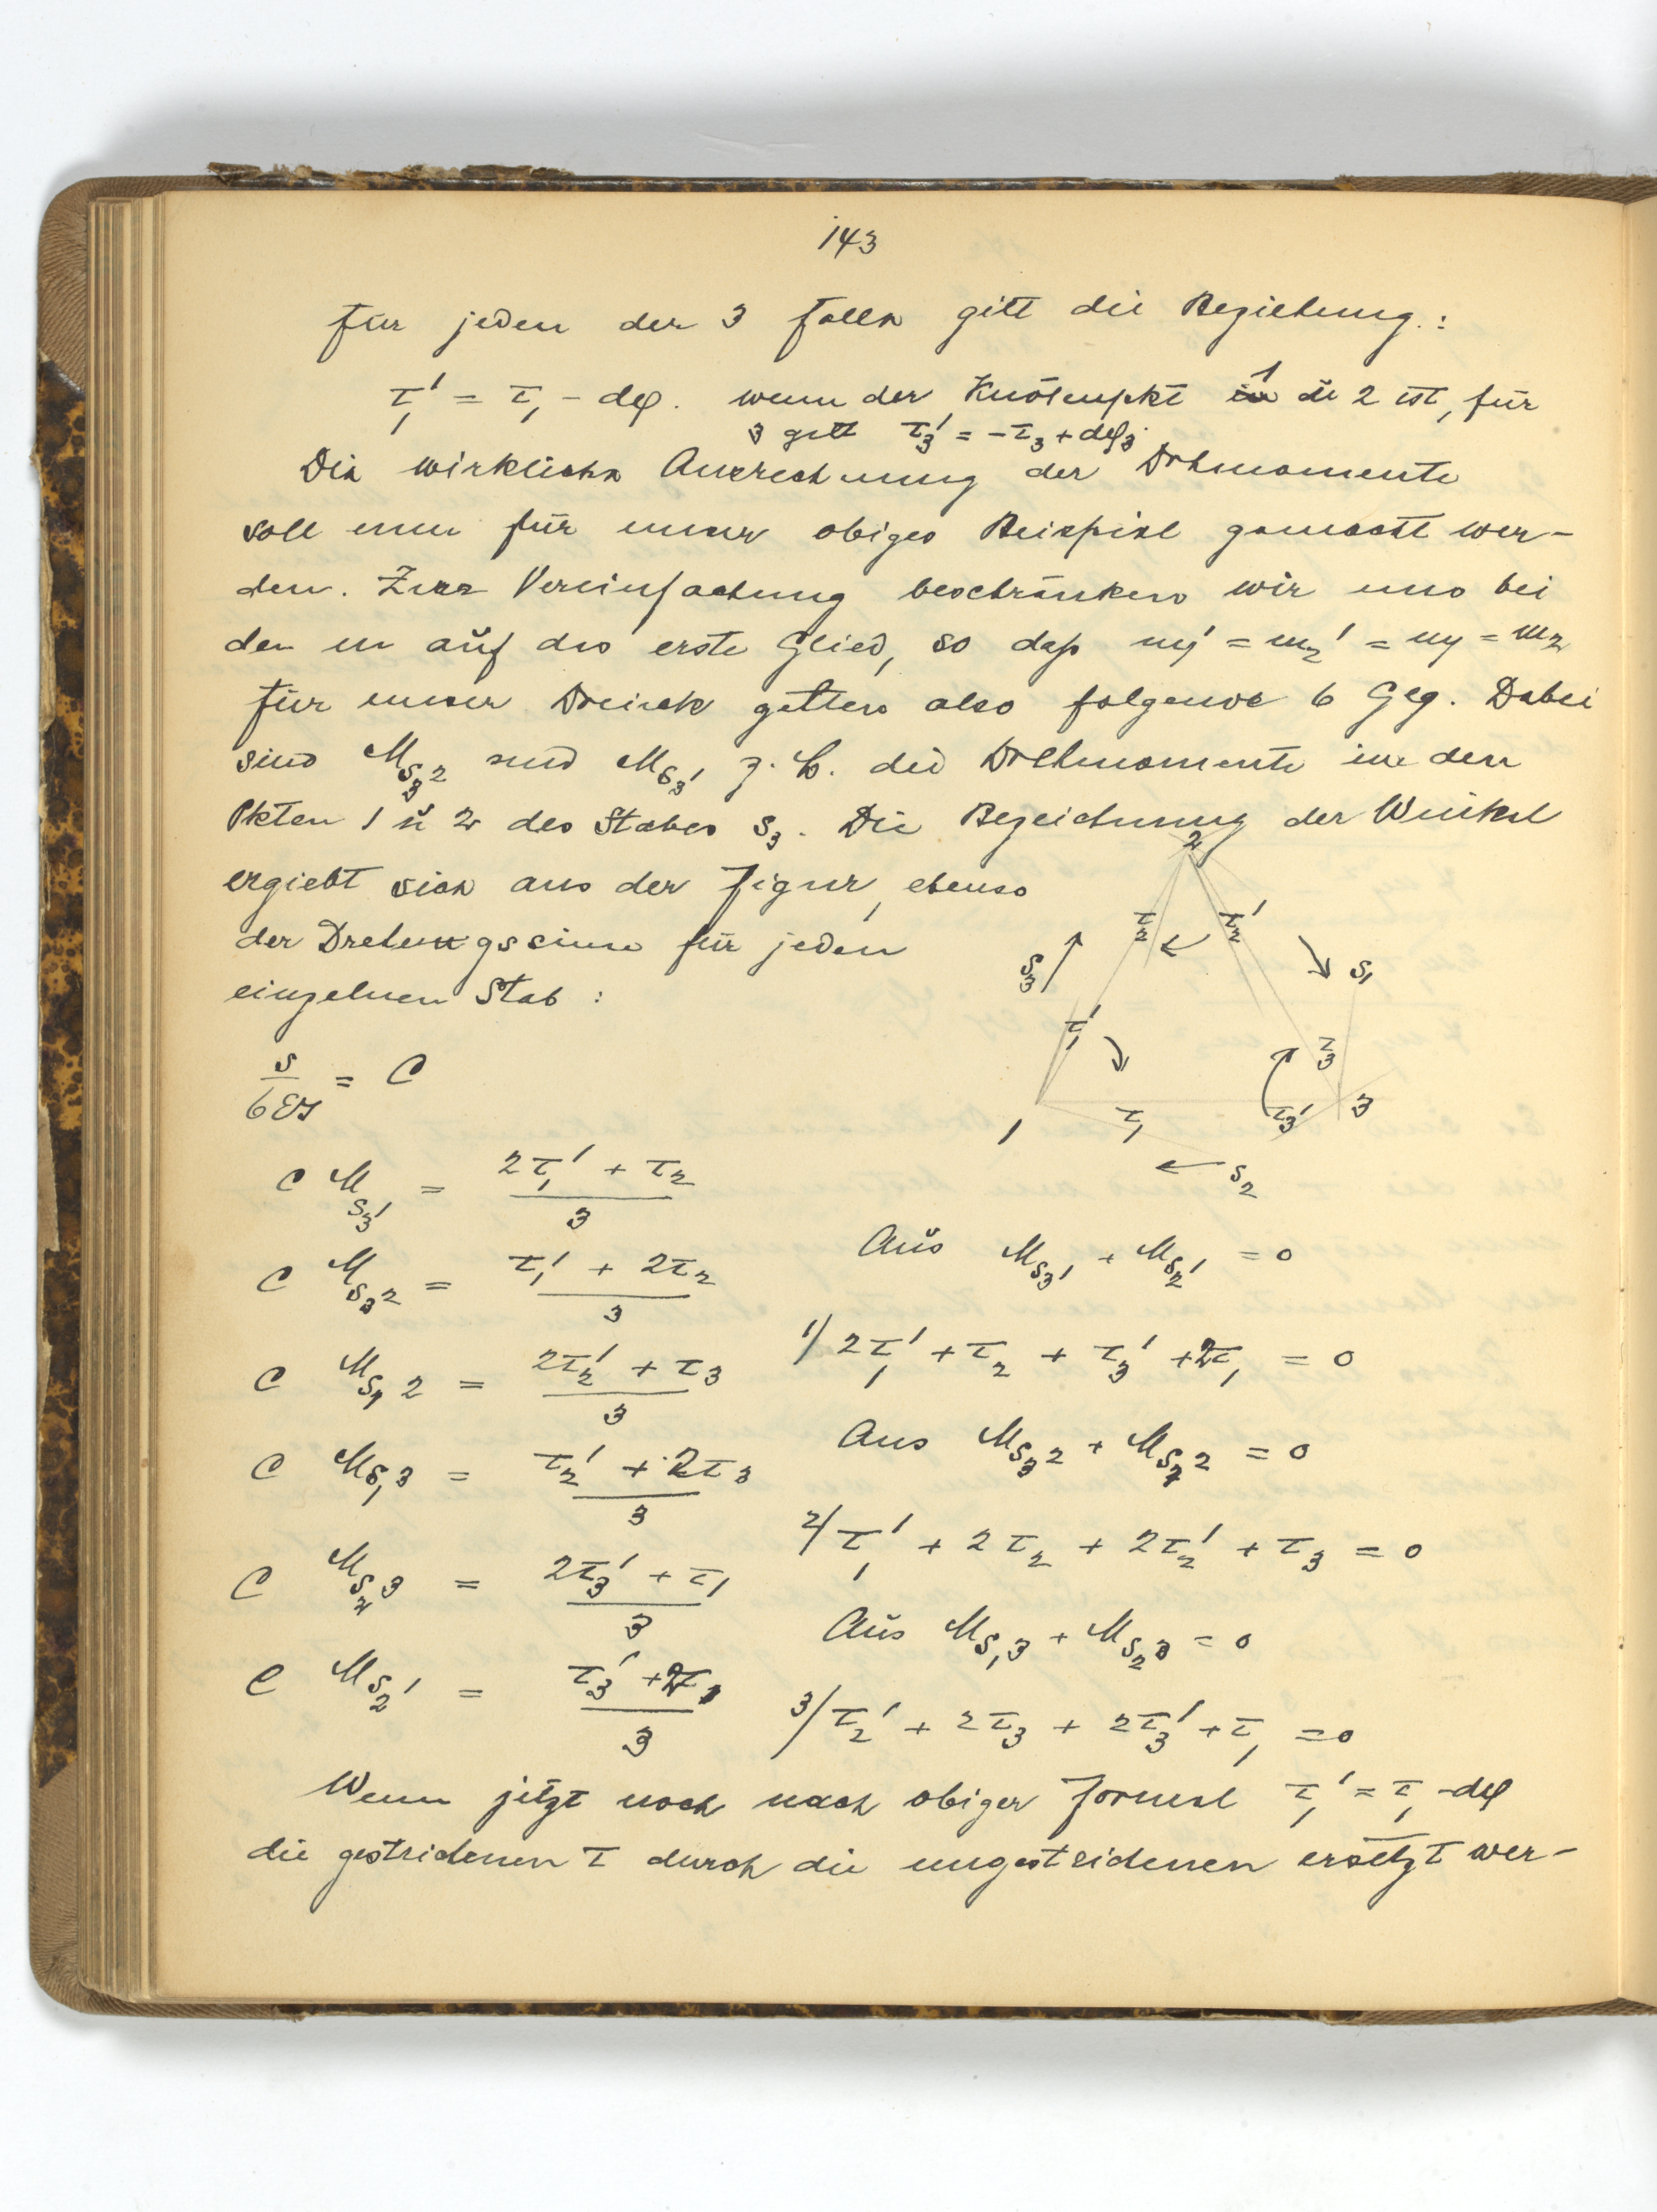 143
für jeden der 3 Fälle gilt die Beziehung:
τ₁' = τ₁ - dφ. wenn der Knotenpkt 1 ŭ 2 ist, für
3 gilt τ₃' = -τ₃ + dφ₃.
Die wirkliche Ausrechnung der Drehmomente
soll nun für unser obiges Beispiel gemacht wer-
den. Zur Vereinfachung beschränken wir uns bei
den m auf das erste Glied, so daß m₁' = m₂' = m₁ = m₂
Für unser Dreieck gelten also folgende 6 Glg. Dabei
sind M_{S₃}2 und M_{S₃}1 z. B. die Drehmomente in den
Pkten 1 ŭ 2 des Stabes S₃. Die Bezeichnung der Winkel
ergiebt sich aus der Figur, ebenso
der Drehungssinn für jeden
einzelnen Stab:
2
τ₂ τ₂'
S₃ S₁
τ₁' τ₃
1 τ₁ τ₃' 3
S₂
s/6EJ = C
C M_{S₃}1 = (2τ₁' + τ₂)/3
C M_{S₃}2 = (τ₁' + 2τ₂)/3
C M_{S₁}2 = (2τ₂' + τ₃)/3
C M_{S₁}3 = (τ₂' + 2τ₃)/3
C M_{S₂}3 = (2τ₃' + τ₁)/3
C M_{S₂}1 = (τ₃' + 2τ₁)/3
Aŭs M_{S₃}1 + M_{S₂}1 = 0
1/ 2τ₁' + τ₂ + τ₃' + 2τ₁ = 0
Aus M_{S₃}2 + M_{S₁}2 = 0
2/ τ₁' + 2τ₂ + 2τ₂' + τ₃ = 0
Aŭs M_{S₁}3 + M_{S₂}3 = 0
3/ τ₂' + 2τ₃ + 2τ₃' + τ₁ = 0
Wenn jetzt noch nach obiger Formel τ₁' = τ₁ - dφ
die gestrichenen τ durch die ungestrichenen ersetzt wer-